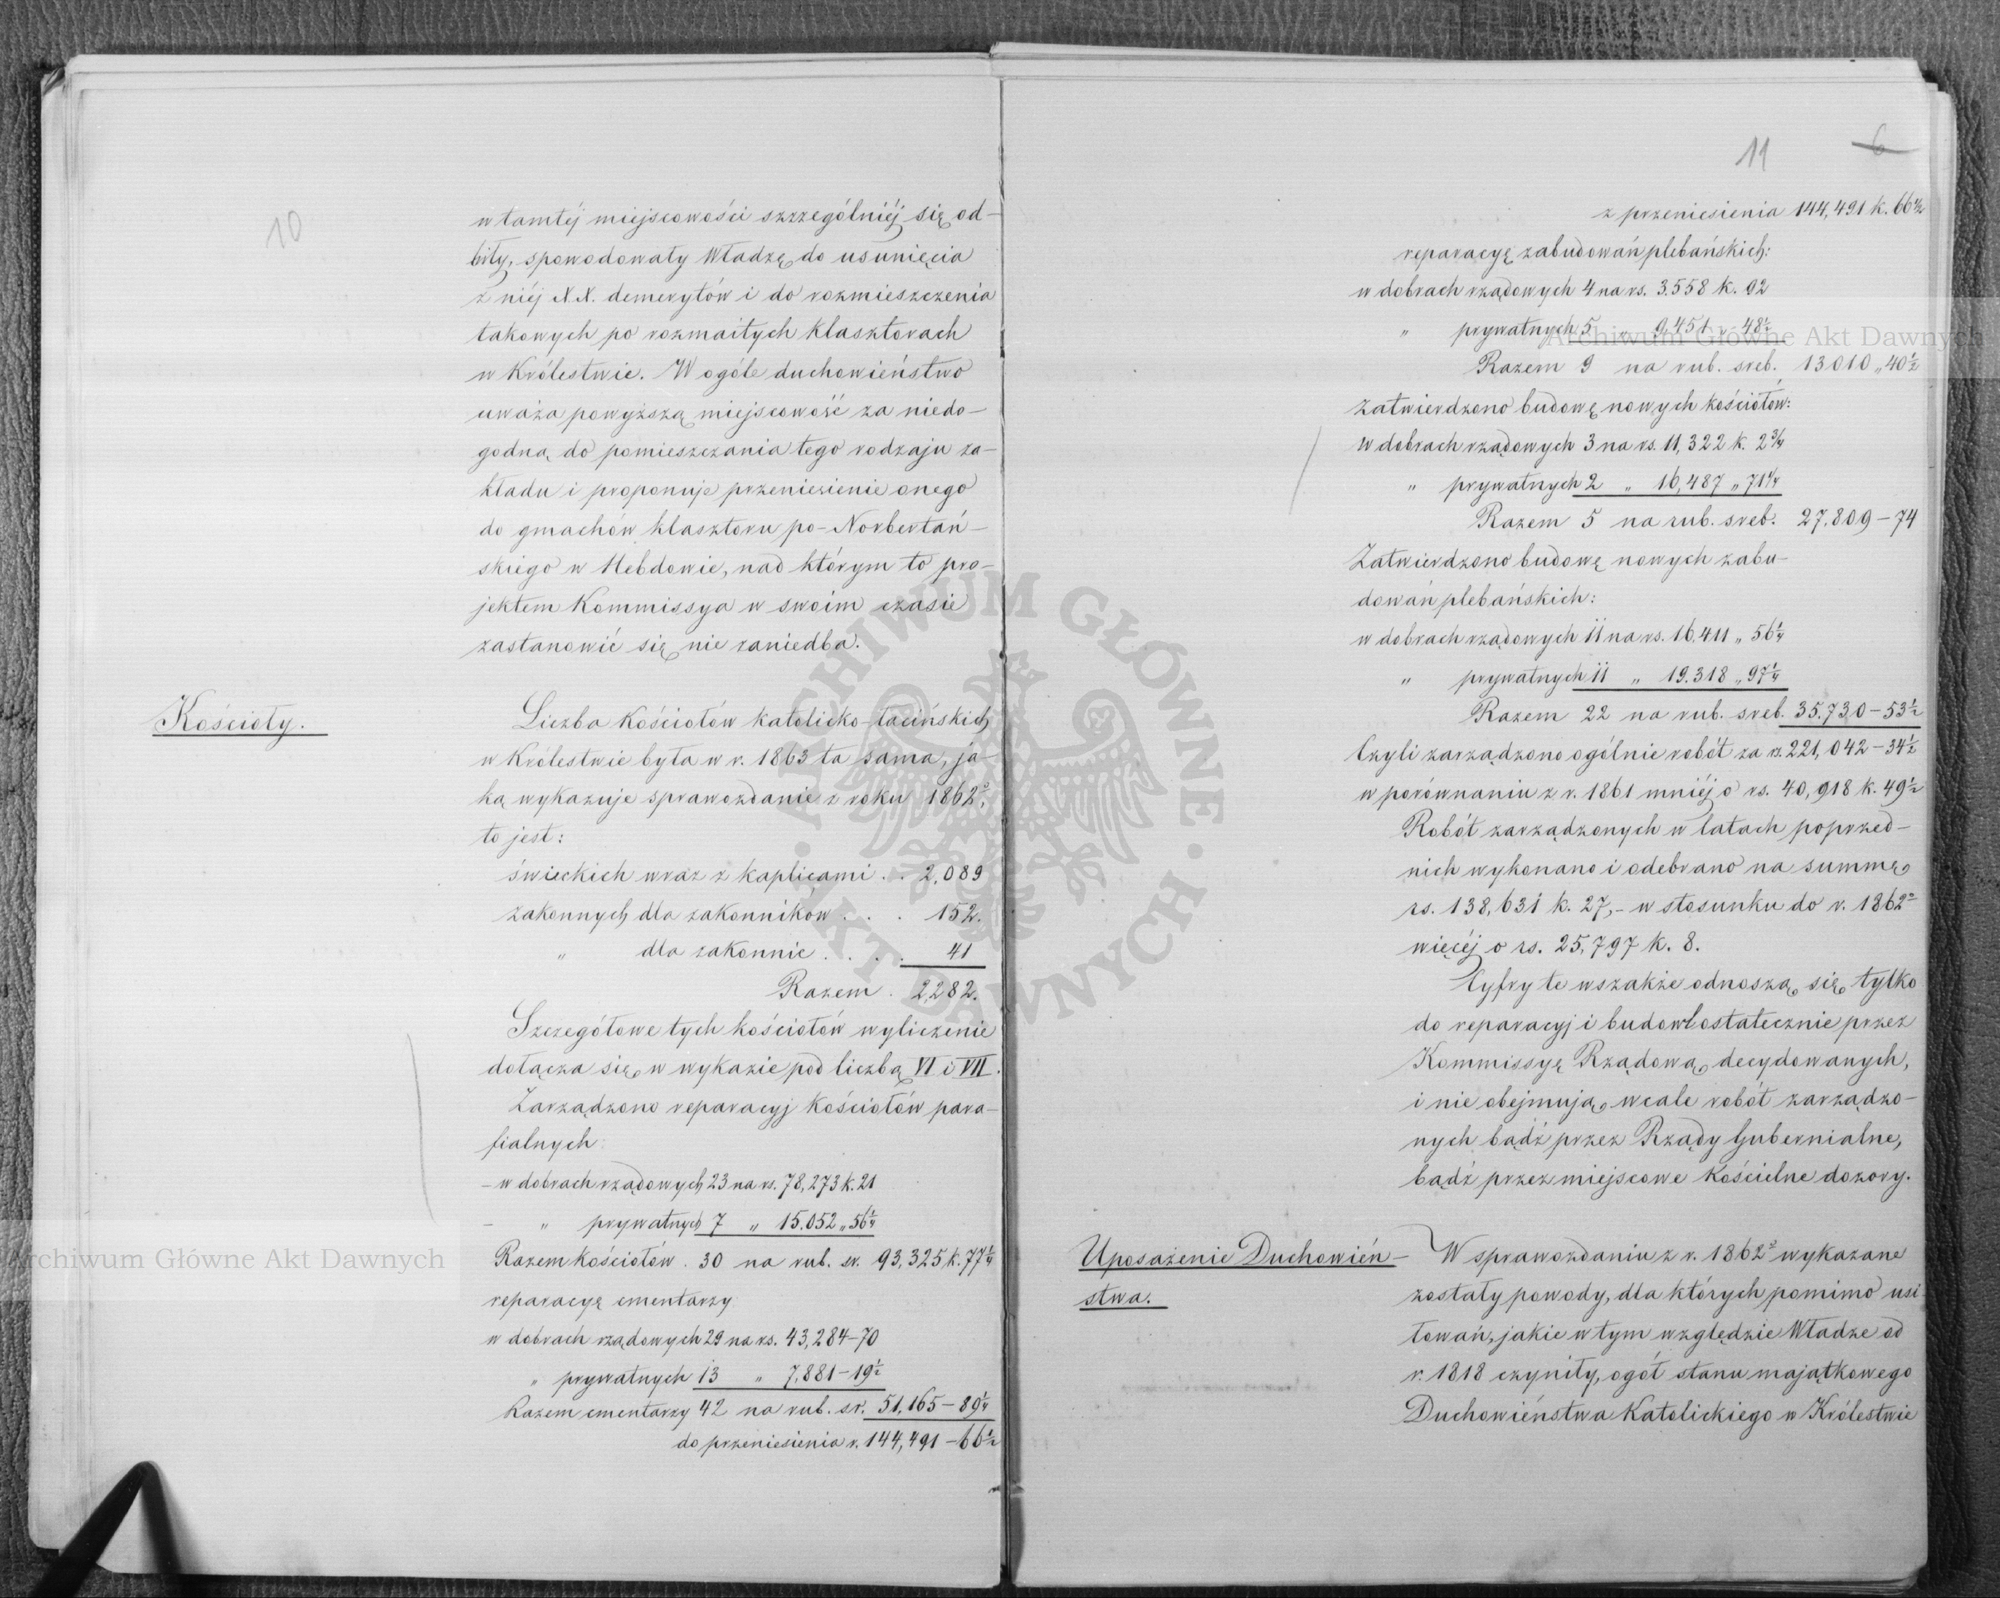 10
w tamtéj miejscowości szczególniéj się od-
biły, spowodowały Władzę do usunięcia
z niéj N.N. demerytów i do rozmieszczenia
takowych po rozmaitych klasztorach
w Królestwie. W ogóle duchowieństwo
uważa powyższą miejscowość za niedo-
godną do pomieszczania tego rodzaju za-
kładu i proponuje przeniesienie onego
do gmachów klasztoru po-Norbertań-
skiego w Hebdowie, nad którym to pro-
jektem Kommissya w swoim czasie
zastanowić się nie zaniedba.
Kościoły.
Liczba kościołów katolicko-łacińskich
w Królestwie była w r. 1863 ta sama, ja-
ką wykazuje sprawozdanie z roku 1862,
to jest:
świeckich wraz z kaplicami . . 2,089
zakonnych dla zakonników . . . 152.
" dla zakonnic . . . . 41
Razem . 2,282.
Szczegółowe tych kościołów wyliczenie
dołącza się w wykazie pod liczbą VI i VII.
Zarządzono reparacyj kościołów para-
fialnych:
- w dobrach rządowych 23 na rs. 78,273 k. 21
- " prywatnych 7 " 15.052 " 56 1/4
Razem kościołów . 30 na rub. sr. 93,325 k. 77 1/4
reparacyę cmentarzy
w dobrach rządowych 29 na rs. 43,284-70
" prywatnych 13 " 7,881-19 1/2
Razem cmentarzy 42 na rub. sr. 51,165-89 1/4
do przeniesienia r. 144,491-66 1/2
11 6
z przeniesienia 144,491 k. 66 1/2
reparacyę zabudowań plebańskich:
w dobrach rządowych 4 na rs. 3.558 k. 92
" prywatnych 5 " 9,451 " 48 1/2
Razem 9 na rub. sreb. 13010 " 40 1/2
Zatwierdzono budowę nowych kościołów:
w dobrach rządowych 3 na rs. 11,322 k. 2 3/4
" prywatnych 2 " 16,487 " 71 1/4
Razem 5 na rub. sreb. 27.809-74
Zatwierdzono budowę nowych zabu-
dowań plebańskich:
w dobrach rządowych 11 na rs. 16,411 " 56 1/4
" prywatnych 11 " 19.318 " 97 1/4
Razem 22 na rub. sreb. 35.730-53 1/2
Czyli zarządzono ogólnie robót za rs. 221,042-34 1/2
w porównaniu z r. 1861 mniéj o rs. 40,918 k. 49 1/2
Robót zarządzonych w latach poprzed-
nich wykonano i odebrano na summę
rs. 138,631 k. 27,- w stosunku do r. 1862
więcéj o rs. 25,797 k. 8.
Cyfry te wszakże odnoszą się tylko
do reparacyj i budowl ostatecznie przez
Kommissyę Rządową decydowanych,
i nie obejmują wcale robót zarządzo-
nych bądź przez Rządy Gubernialne,
bądź przez miejscowe kościelne dozory.
Uposażenie Duchowień-
stwa.
W sprawozdaniu z r. 1862 wykazane
zostały powody, dla których pomimo usi
łowań, jakie w tym względzie Władze od
r. 1818 czyniły, ogół stanu majątkowego
Duchowieństwa Katolickiego w Królestwie
Archiwum Główne Akt Dawnych
Archiwum Główne Akt Dawnych
ARCHIWUM GŁÓWNE · AKT DAWNYCH ·